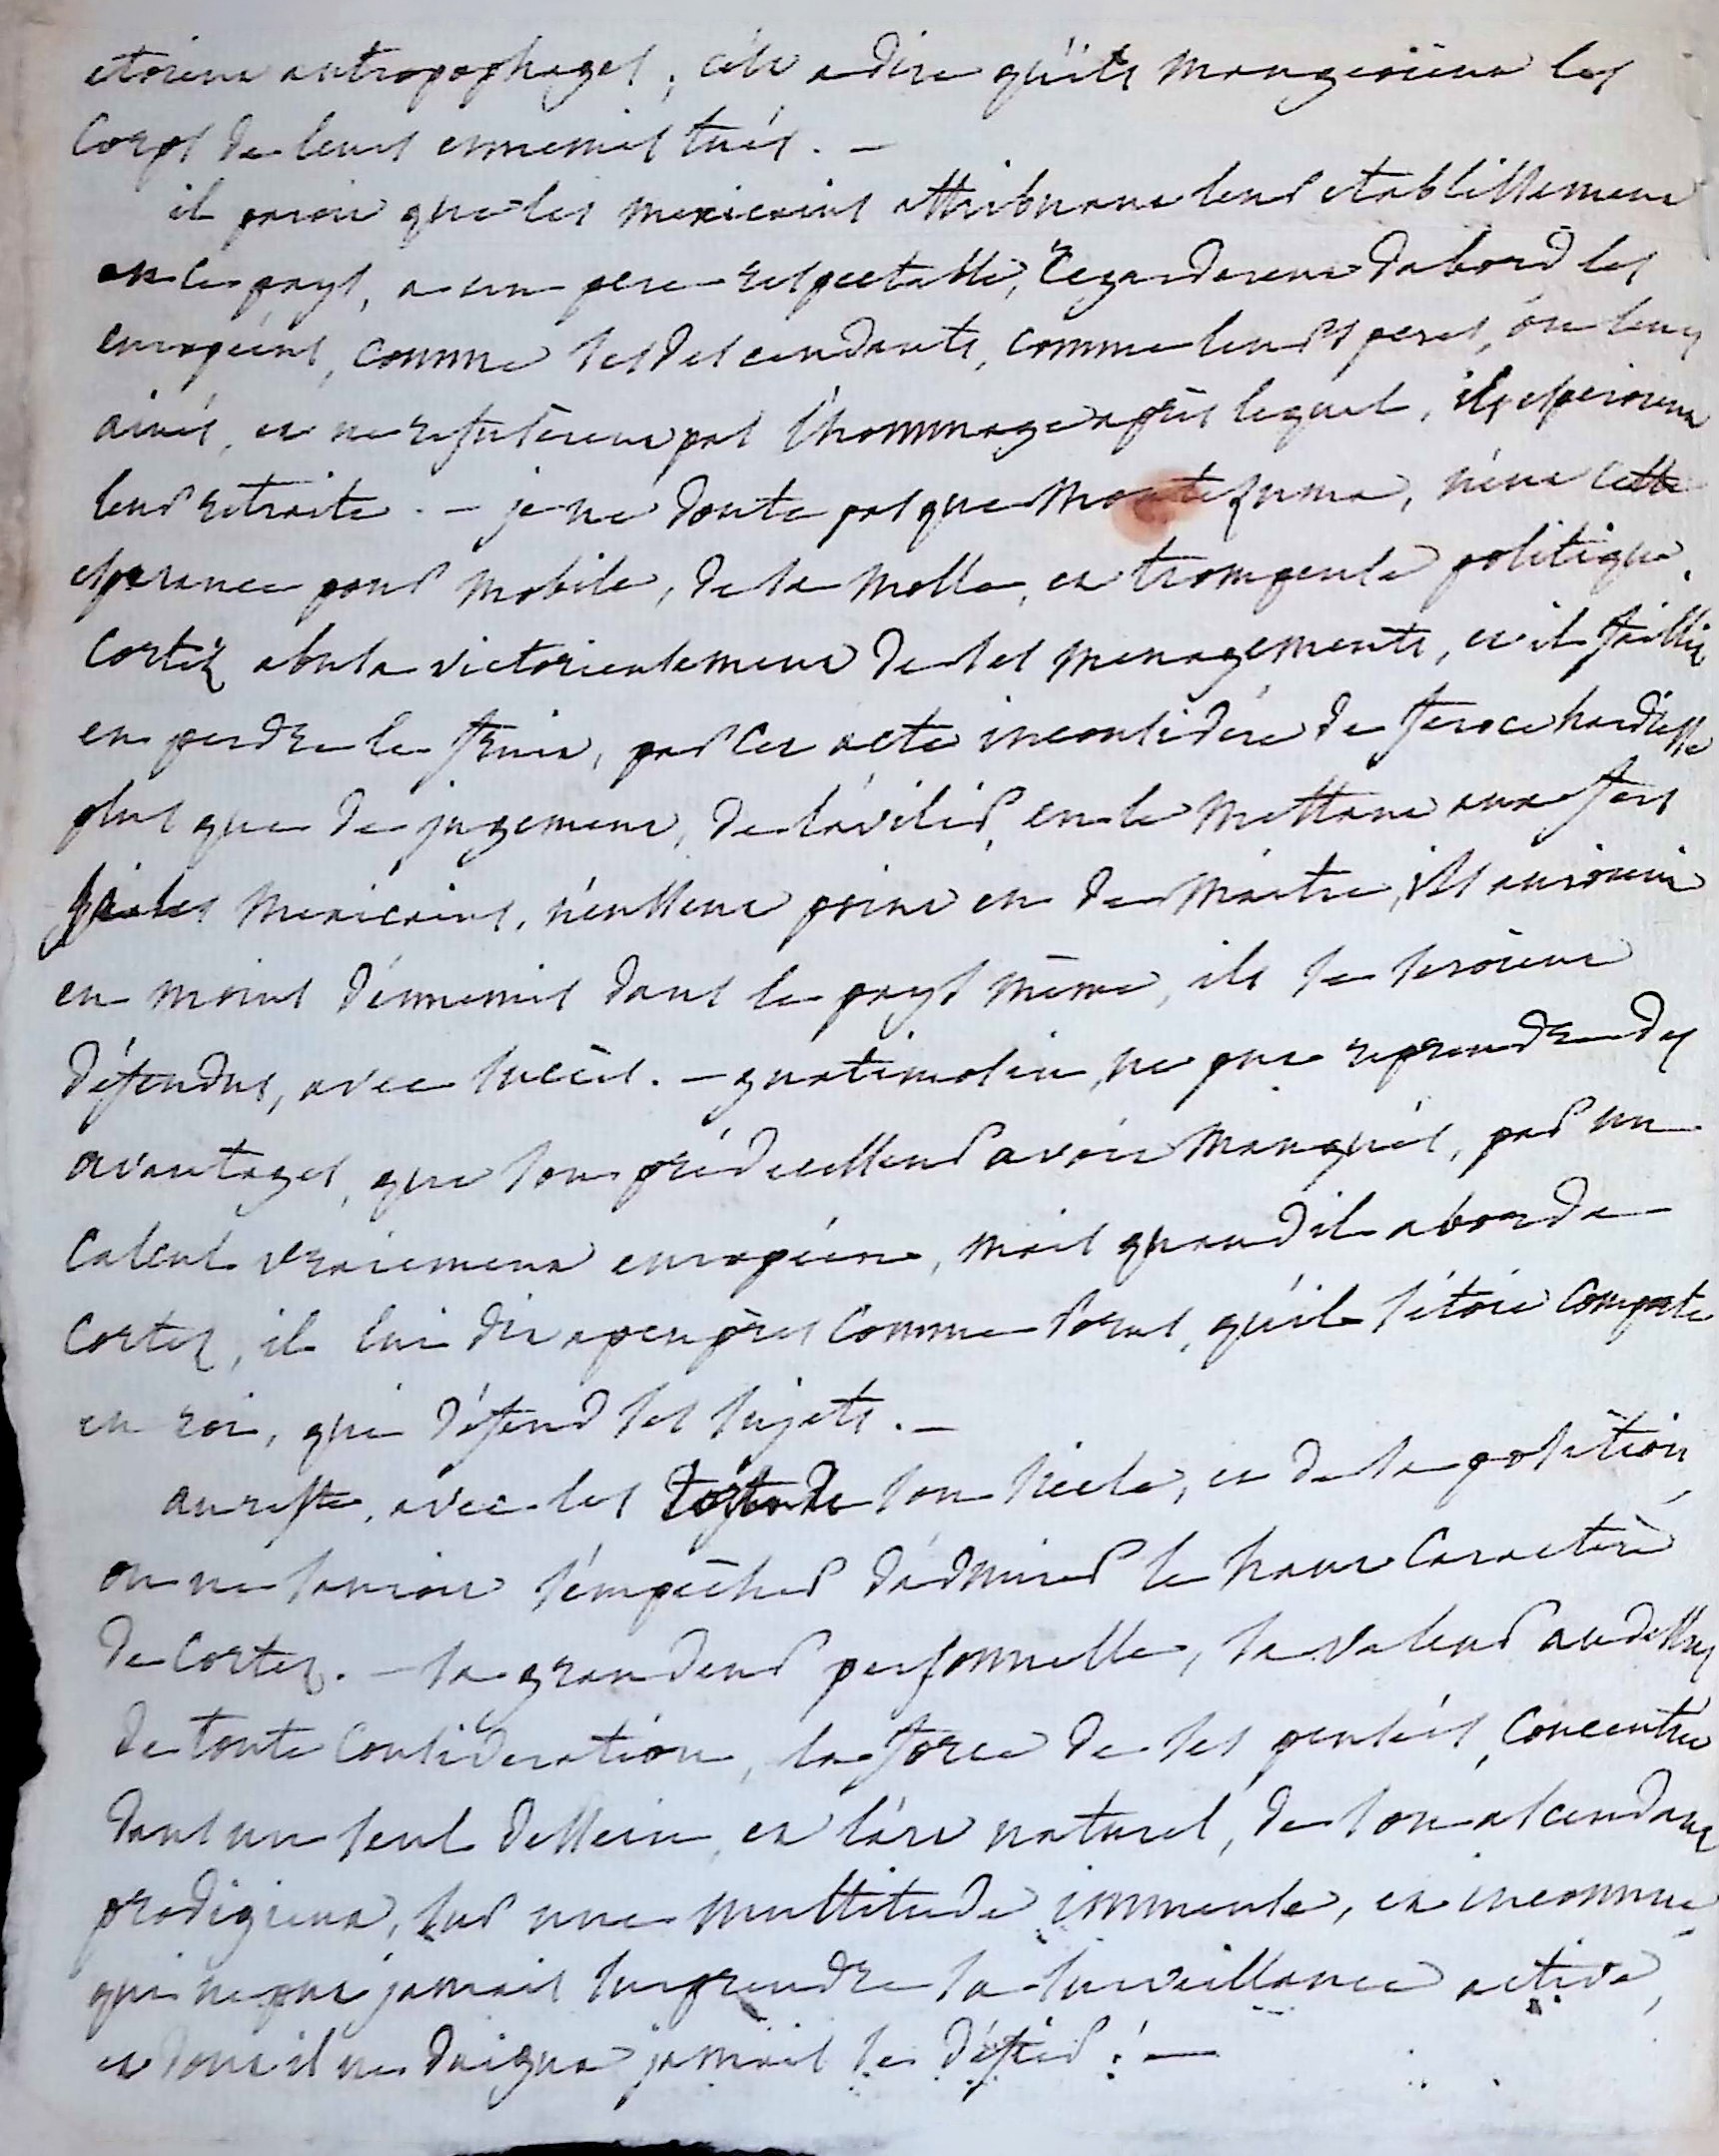 etoient antropophages, c'est a dire qu'ils mangeoient les
corps de leurs ennemis tués. –
il paroit que les mexicains attribuant leur etablissement
en ce pays, a un pere respectable, regarderent d'abord les
européens, comme ses descendants, comme leurs peres, ou leurs
ainés, et ne refuserent pas l'hommage après lequel, ils esperoient
leur retraite. – je ne doute pas que Montezuma, n'eut cette
esperance pour mobile, de sa molle, et trompeuse politique.
Cortéz abusa victorieusement de ses menagements, et il faillit
en perdre le fruit, par cet acte inconsidéré de feroce hardiesse
plus que de jugement, de l'avilir, en le mettant aux fers
si les mexicains, n'eussent point eu de maitre, ils auroient
eu moins d'ennemis dans le pays même, ils se seroient
défendus, avec succès. – guatimosin, ne put reprendre des
avantages, que son prédecesseur avoit manqués, par un
calcul vraiement européen, mais quand il aborda
Cortez, il lui dit apeuprès comme Porus, qu'il s'étoit comporté
en roi, qui défend ses sujets. –
au reste, avec les torts de son siecle, et de sa position,
on ne sauroit s'empêcher d'admirer le haut caractère
de Cortez. – sa grandeur personnelle, sa valeur au dessus
de toute consideration, la force de ses pensées, concentrée
dans un seul dessein, et l'art naturel, de son ascendant
prodigieux, sur une multitude immense, et inconnue
qui ne put jamais surprendre sa surveillance active,
et dont il ne daigna jamais se défier! –